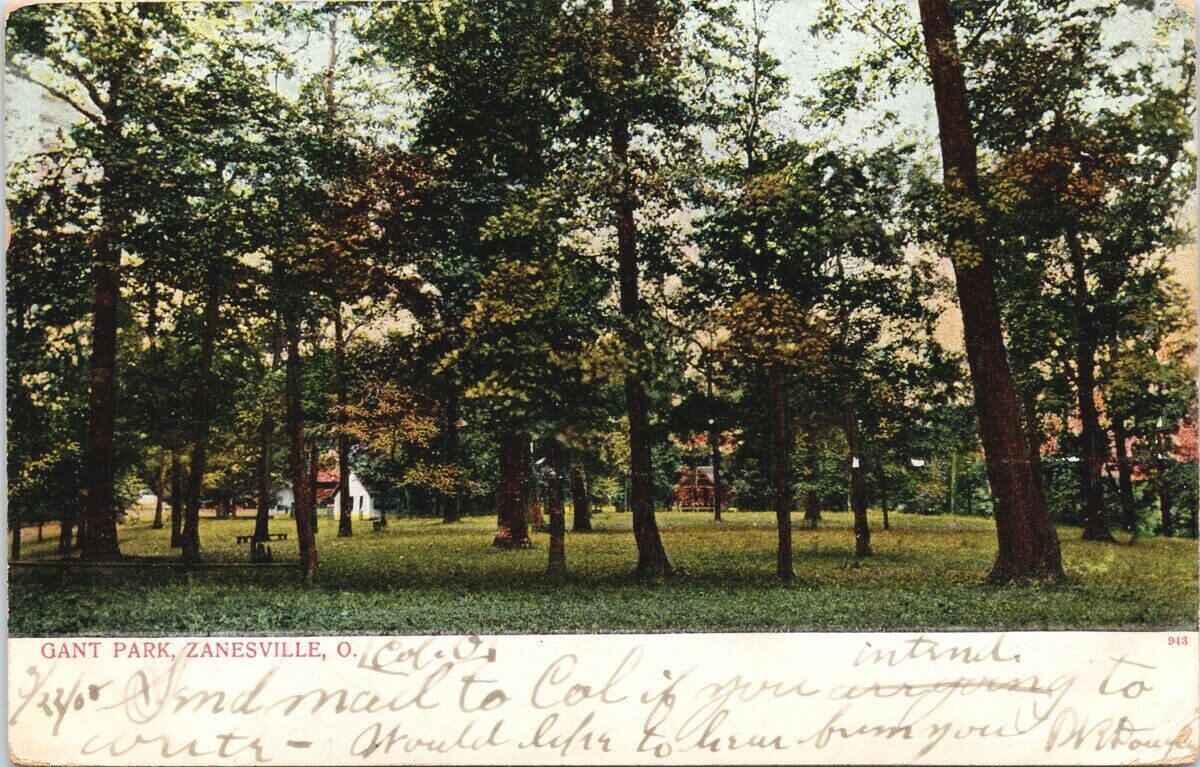 GANT PARK, ZANESVILLE, O. Col. O. 943
intend.
Send mail to Col if you are going to
write - Would like to hear from you